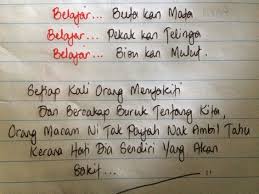 Belajar... Buta kan Mata
Belajar... Pekak kan Telinga
Belajar... Bisu kan Mulut.
Setiap Kali Orang Menyakiti
Dan Bercakap Buruk Tentang Kita,
Orang Macam Ni Tak Payah Nak Ambil Tahu
Kerana Hati Dia Sendiri Yang Akan
Sakit...